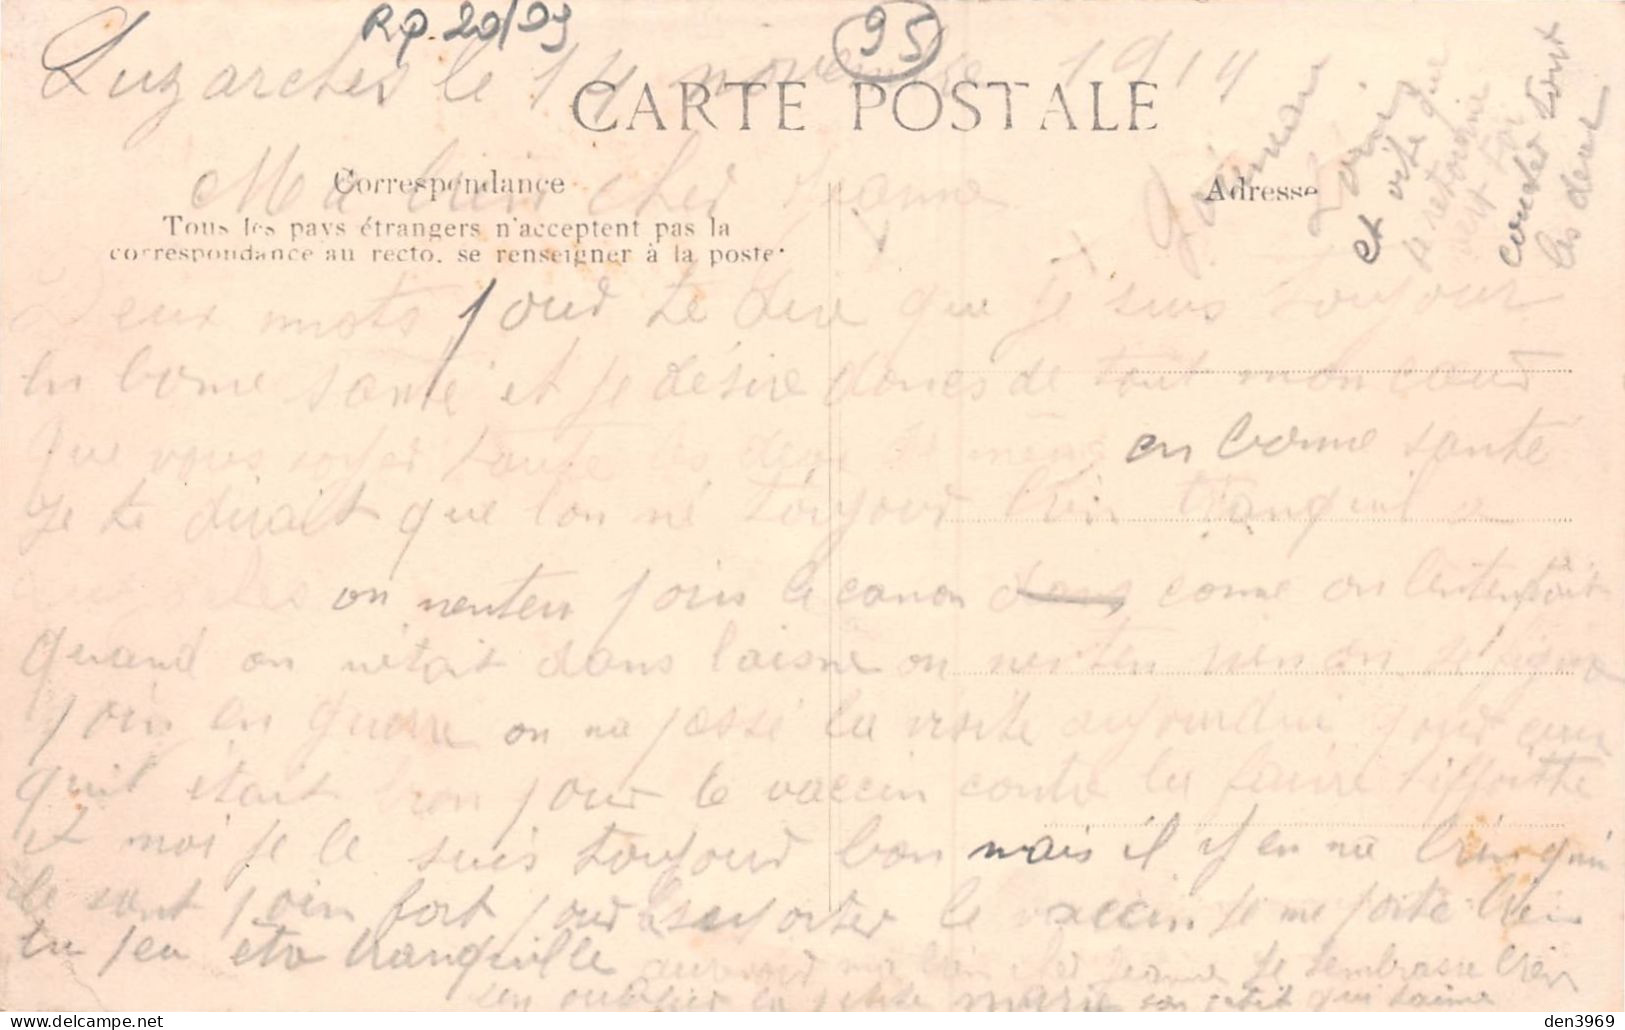 RP. 20/09
95
Luzarches le 14 novembre 1914
CARTE POSTALE
Correspondance
Adresse
Tous les pays étrangers n'acceptent pas la
correspondance au recto. se renseigner à la poste.
Ma bien cher Jeanne
Deux mots pour te dire que je suis toujour
en bonne santé et je désire doncs de tout mon coeur
Que vous soyer toute les deux de même en bonne santé
Je te dirait que lon né toujour bien tranquil a
on nenten poin le canon dans come on lentendait
quand on nétait dans laisne on nenten rien on se figure
poin en guerre on na passé la visite aujourdui pour ceux
quil était bon pour le vaccin contre la fievre tiffoitte
et moi je le suis toujour bon mais il y en na bien qui
le sont poin fort pour le suporter le vaccin je me porte bien
tu peu être tranquille aurevoir ma bien cher Jeanne je tembrasse bien
sen oublier la petite marie ton petit qui taime
et vite que
se retourne
vert toi
consoler tout
les deux
den3969